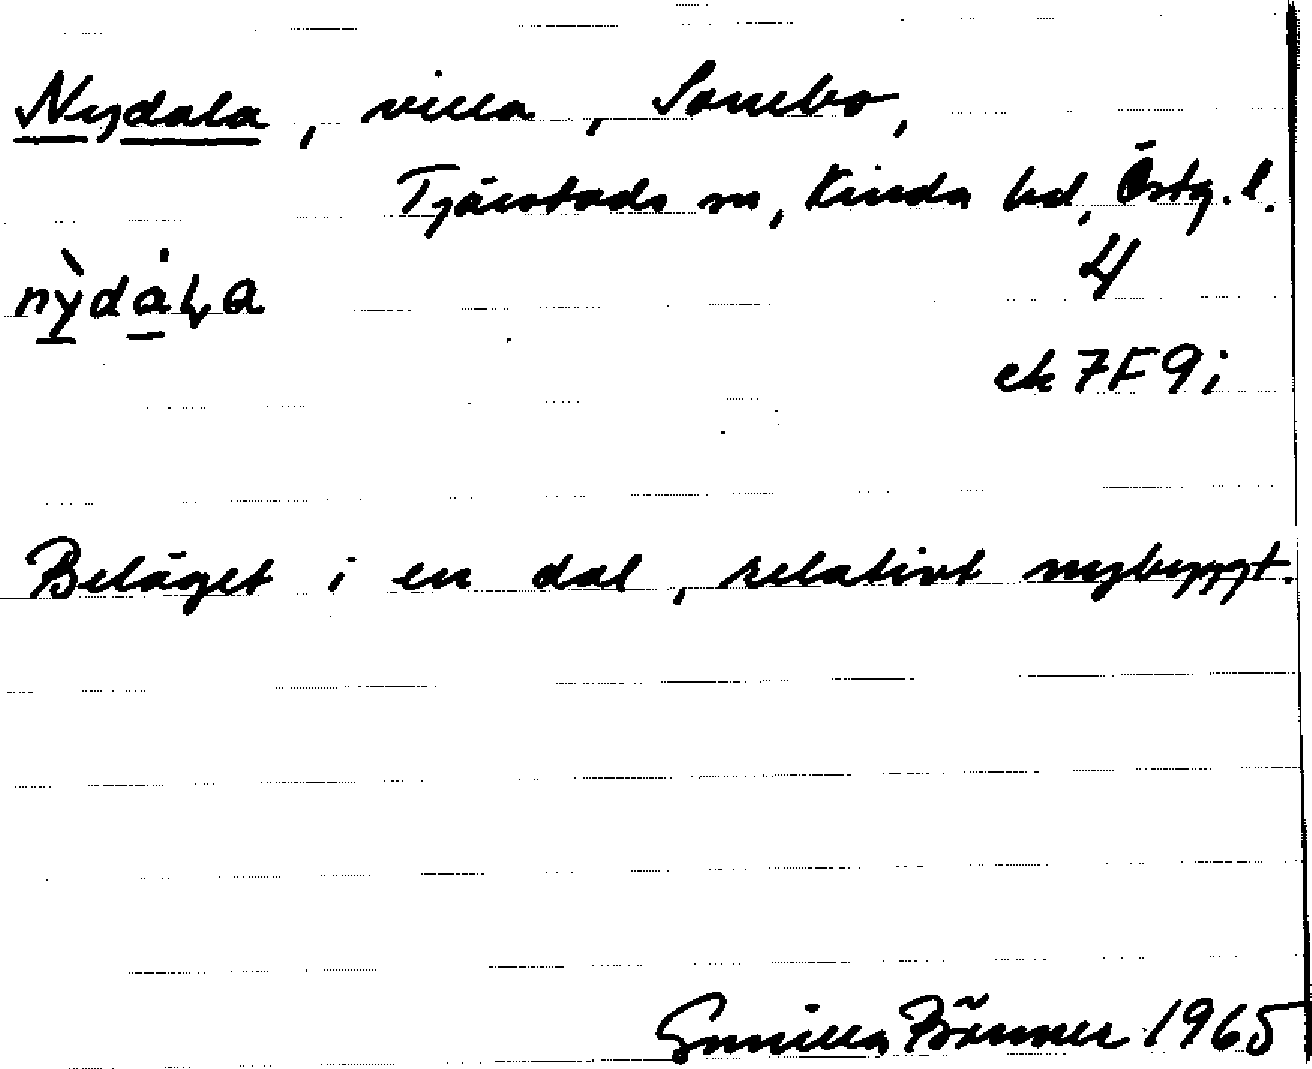 Nydala, villa, Sonebo,
Tjärstads sn, Kinda hd, Östg. l.
nỳdàla
4
ek 7F9i
Beläget i en dal, relativt nybyggt.
Gunilla Bönner 1965